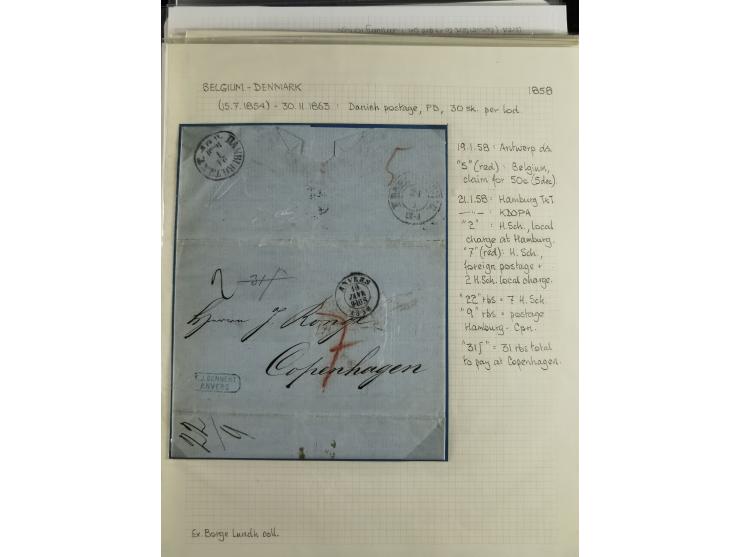 BELGIUM - DENMARK
1858
(15.7.1854) - 30.11.1863 : Danish postage, PD, 30 sk. per lod.
19.1.58 : Antwerp ds.
"5" (red) : Belgium,
claim for 50c (5dec)
21.1.58 : Hamburg T&T
—"— : KDOPA
"2" : H.Sch., local
charge at Hamburg.
"7" (red) : H. Sch.,
foreign postage +
2 H.Sch. local charge.
"22" rbs = 7 H. Sch.
"9" rbs = postage
Hamburg - Cpn.
"31ʃ" = 31 rbs total
to pay at Copenhagen.
5
2
31ʃ
ANVERS
19
JANV
1858
Herrn J.
7
Copenhagen
ANVERS
22/9
Ex. Børge Lundh coll.